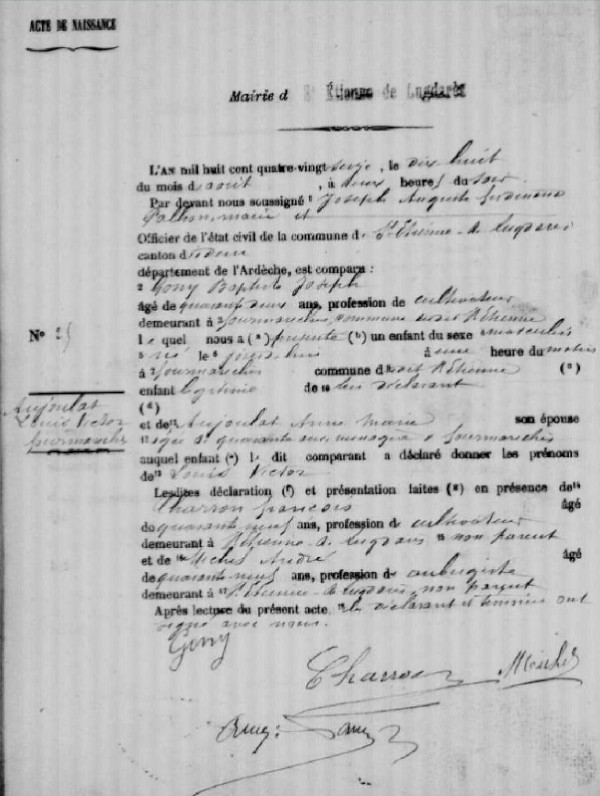 ACTE DE NAISSANCE
Mairie d St Étienne de Lugdarès
L'AN mil huit cent quatre-vingt seize, le dix huit
du mois d'août, à deux heures du soir
Par devant nous soussigné Joseph Auguste Ferdinand
maire et
Officier de l'état civil de la commune de St Etienne-de Lugdarès
canton d
département de l'Ardèche, est comparu :
2 Gony Baptiste Joseph
âgé de quarante deux ans, profession de cultivateur
demeurant à 3 commune dudit St Etienne
No
le quel nous a (a) présenté (b) un enfant du sexe masculin
5 né le 6 à une heure du matin
à 7 commune dudit St Etienne (c)
enfant légitime de 10 lui déclarant
(d)
Aujoulat
Louis Victor
et de 12 Aujoulat Anne Marie son épouse
13 âgée de quarante ménagère à
auquel enfant (e) le dit comparant a déclaré donner les prénoms
de 13 Louis Victor
Lesdites déclaration (f) et présentation faites (g) en présence de 14
Charron françois âgé
de quarante neuf ans, profession de cultivateur
demeurant à St Etienne-de Lugdarès 15 non parent
et de 16 André âgé
de quarante-neuf ans, profession de aubergiste
demeurant à 17 St Etienne-de Lugdarès, non parent
Après lecture du présent acte, le déclarant et témoins ont
signé avec nous.
Gony
Charron